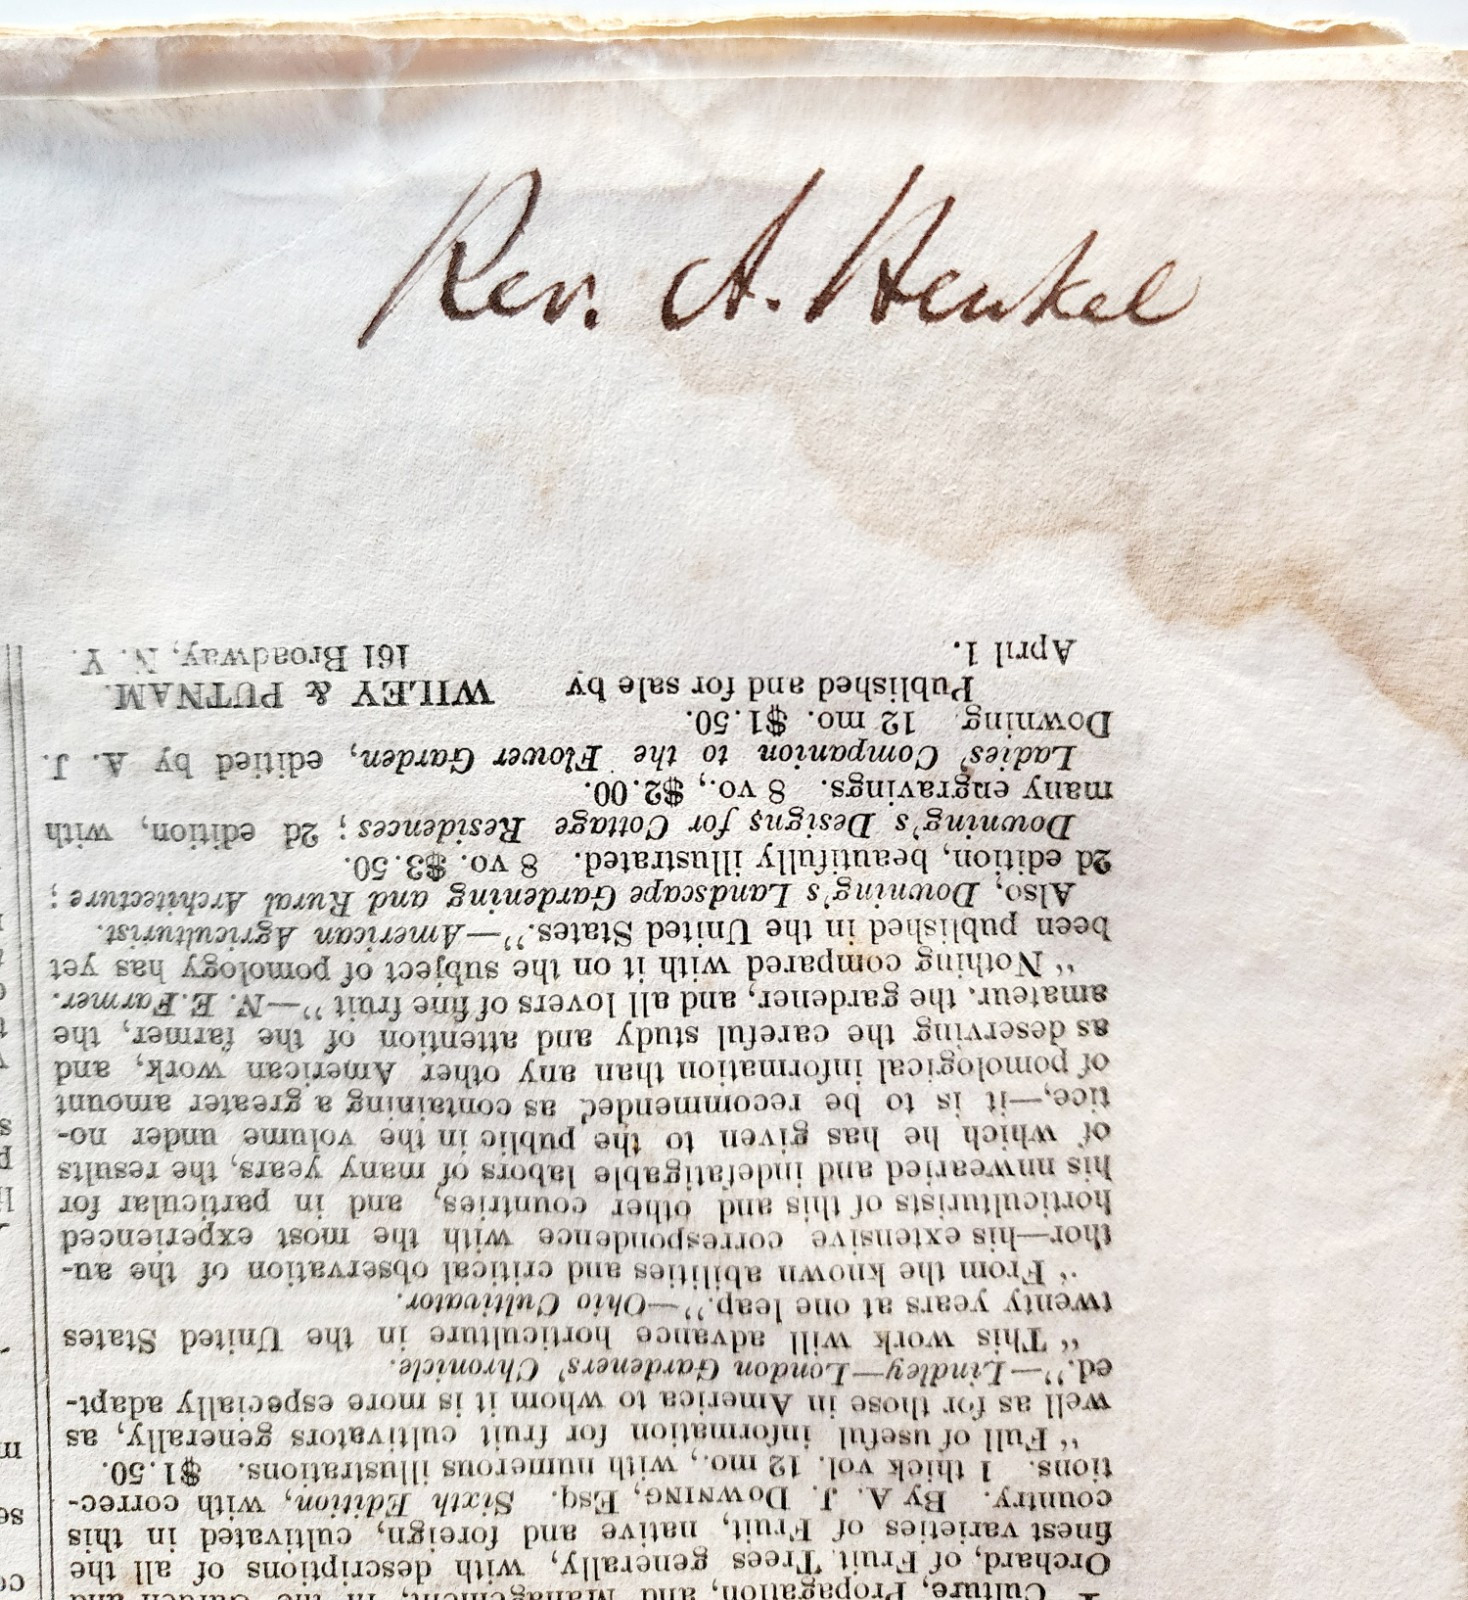 Rev. A. Henkel
Culture, Propagation, and Management, in the Garden and
Orchard, of Fruit Trees generally, with descriptions of all the
finest varieties of Fruit, native and foreign, cultivated in this
country. By A. J. DOWNING, Esq. Sixth Edition, with correc-
tions. 1 thick vol. 12 mo., with numerous illustrations. $1.50.
" Full of useful information for fruit cultivators generally, as
well as for those in America to whom it is more especially adapt-
ed."—Lindley—London Gardeners' Chronicle.
" This work will advance horticulture in the United States
twenty years at one leap."—Ohio Cultivator.
" From the known abilities and critical observation of the au-
thor—his extensive correspondence with the most experienced
horticulturists of this and other countries, and in particular for
his unwearied and indefatigable labors of many years, the results
of which he has given to the public in the volume under no-
tice,—it is to be recommended as containing a greater amount
of pomological information than any other American work, and
as deserving the careful study and attention of the farmer, the
amateur, the gardener, and all lovers of fine fruit "—N. E. Farmer.
" Nothing compared with it on the subject of pomology has yet
been published in the United States."—American Agriculturist.
Also, Downing's Landscape Gardening and Rural Architecture ;
2d edition, beautifully illustrated. 8 vo. $3.50.
Downing's Designs for Cottage Residences ; 2d edition, with
many engravings. 8 vo., $2.00.
Ladies' Companion to the Flower Garden, editied by A. J.
Downing. 12 mo. $1.50.
Published and for sale by WILEY & PUTNAM.
April 1. 161 Broadway, N. Y.